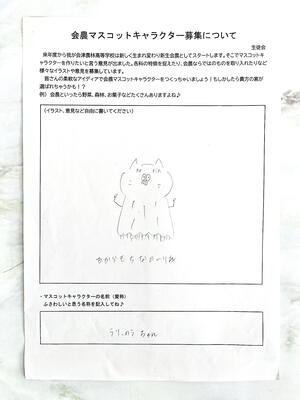 会農マスコットキャラクター募集について
生徒会
来年度から我が会津農林高等学校は新しく生まれ変わり新生会農としてスタートします。そこでマスコット
キャラクターを作りたいと言う意見が出ました。各科の特徴を捉えたり、会農ならではのものを取り入れたりなど
様々なイラストや意見を募集しています。
皆さんの柔軟なアイディアで会農マスコットキャラクターをつくっちゃいましょう!もしかしたら貴方の案が
選ばれちゃうかも!?
例) 会農といったら野菜、森林、お菓子などたくさんありますよね♪
(イラスト、意見など自由に書いてください)
・マスコットキャラクターの名前(愛称)
ふさわしいと思う名称を記入してね♪